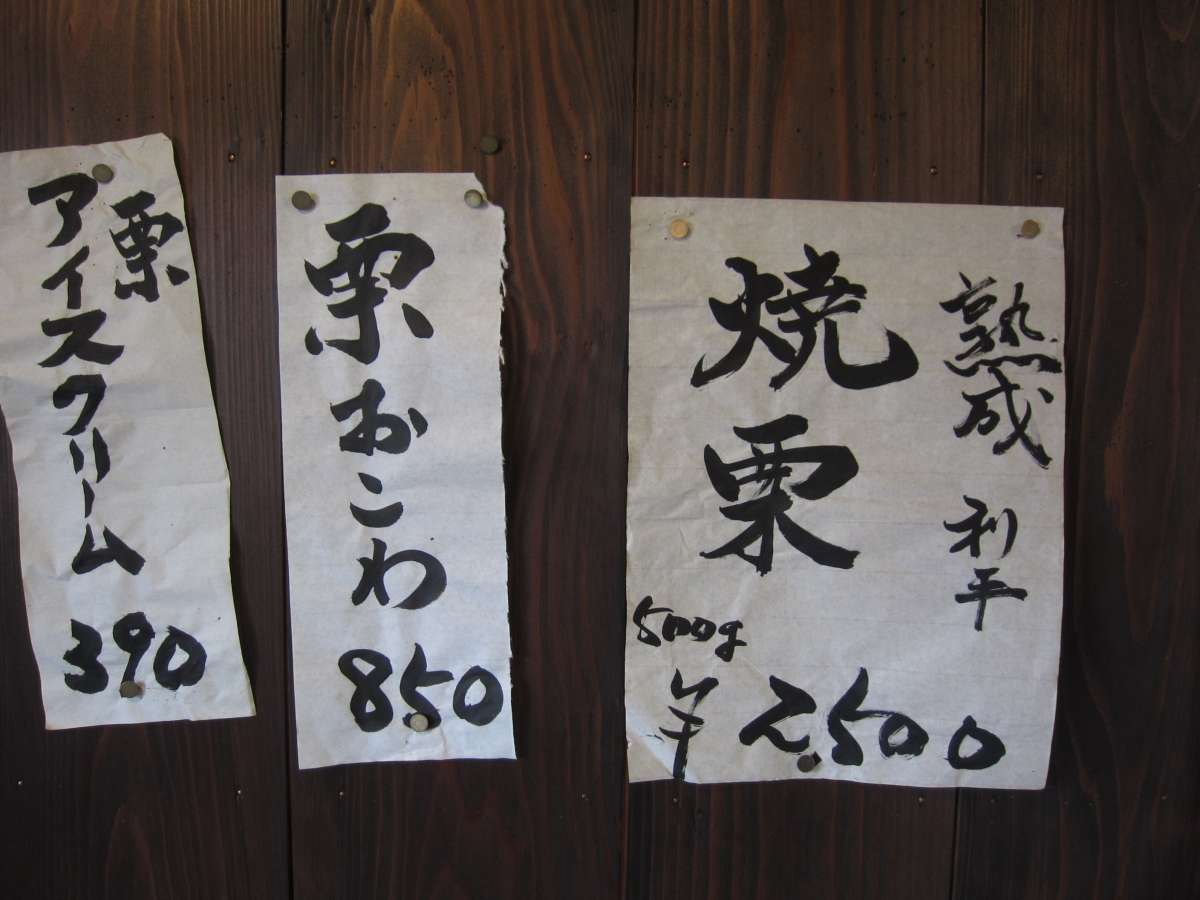 栗
アイスクリーム
390
栗おこわ
850
熟成 利平
焼栗
500g
¥2500